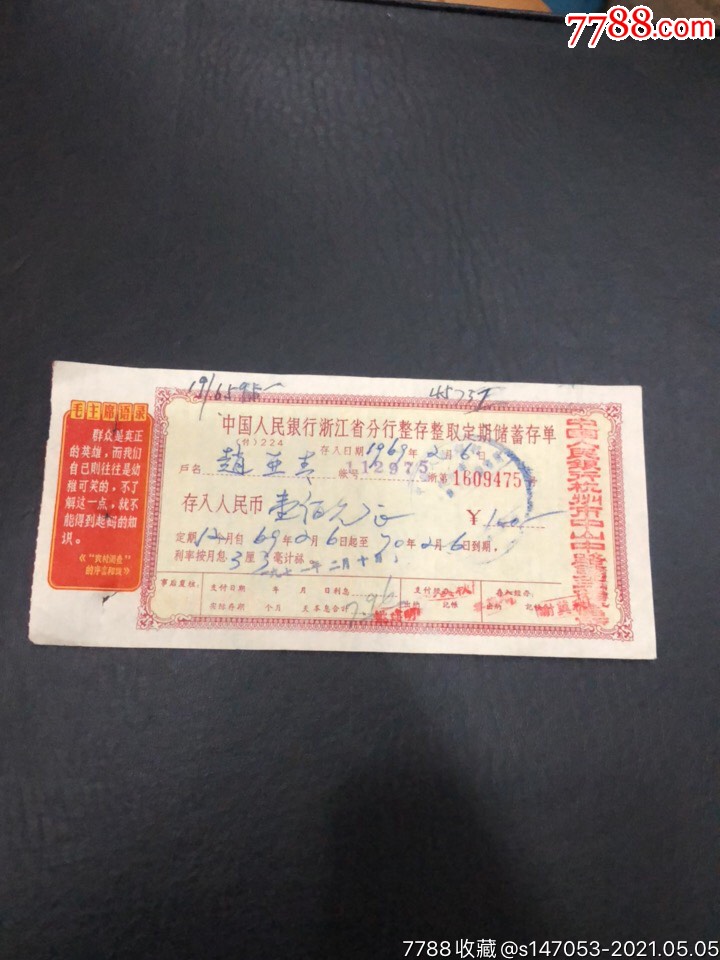 7788.com
19/6595
4573
毛主席语录
群众是真正
的英雄，而我们
自己则往往是幼
稚可笑的，不了
解这一点，就不
能得到起码的知
识。
《"农村调查"
的序言和跋》
中国人民银行浙江省分行整存整取定期储蓄存单
(付)224
存入日期1969年2月6日
户名 趙
帐号112975
第1609475号
存入人民币 壹佰元正
￥100
定期12月自69年2月6日起至70年2月6日到期，
利率按月息3厘3毫计算
一九七一年二月十日
事后复核：
支付日期 年 月 日利息
支付
实际存期 个月 支本息合计
7.96
记帐
记帐
中国人民银行杭州市中山中路
7788收藏@s147053-2021.05.05